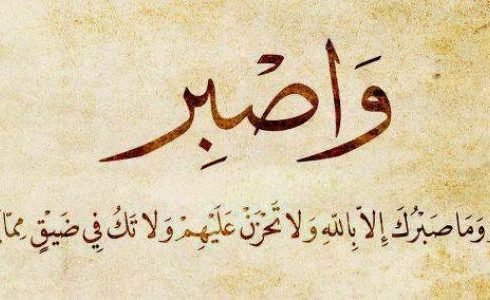 وَاصْبِر
وَمَا صَبْرُكَ إِلاَّ بِاللَّهِ وَلَا تَحْزَنْ عَلَيْهِمْ وَلَا تَكُ فِي ضَيْقٍ